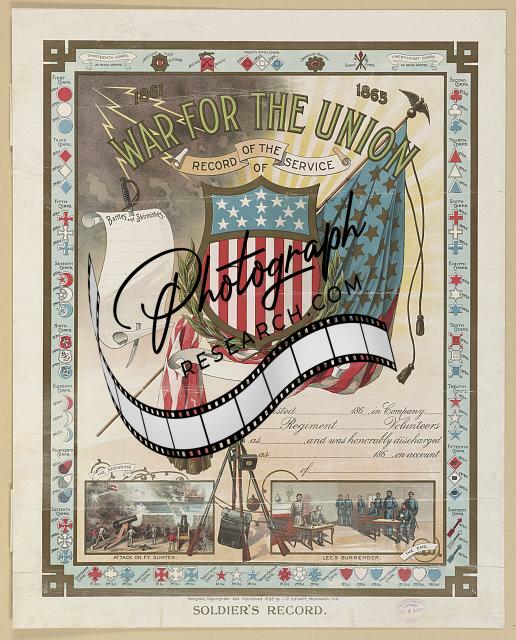 THIRTEENTH CORPS.
NO BADGE ADOPTED.
TWENTY FIFTH CORPS.
TWENTY-FIRST CORPS.
NO BADGE ADOPTED.
FIRST CORPS.
SECOND CORPS.
THIRD CORPS.
FOURTH CORPS.
FIFTH CORPS.
SIXTH CORPS.
SEVENTH CORPS.
EIGHTH CORPS.
NINTH CORPS.
TENTH CORPS.
ELEVENTH CORPS.
TWELFTH CORPS.
FOURTEENTH CORPS.
FIFTEENTH CORPS.
SIXTEENTH CORPS.
1861
1865
WAR FOR THE UNION
RECORD OF THE
OF SERVICE
Battles and Skirmishes
Photograph
RESEARCH.COM
186 , in Company
Regiment Volunteers
as , and was honorably discharged
as 186 , on account
of
THE BEGINNING
ATTACK ON FT. SUMTER.
LEE'S SURRENDER.
THE END.
Designed, Copyrighted and Published 1895 by
SOLDIER'S RECORD.